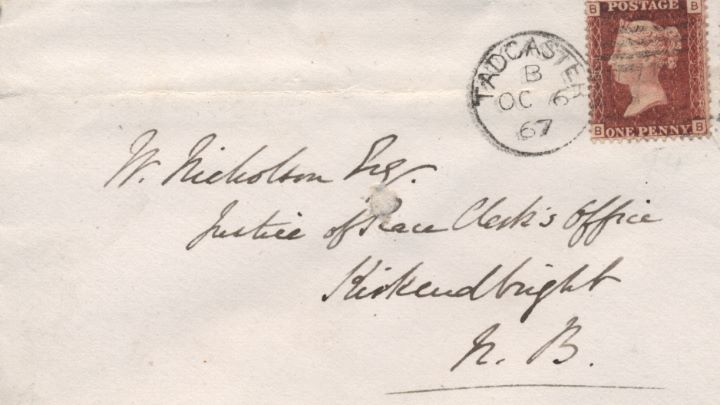 POSTAGE
B B
B ONE PENNY B
TADCASTER
B
OC 6
67
W. Nicholson Esq.
Justice of Peace Clerk's Office
Kirkcudbright
N. B.